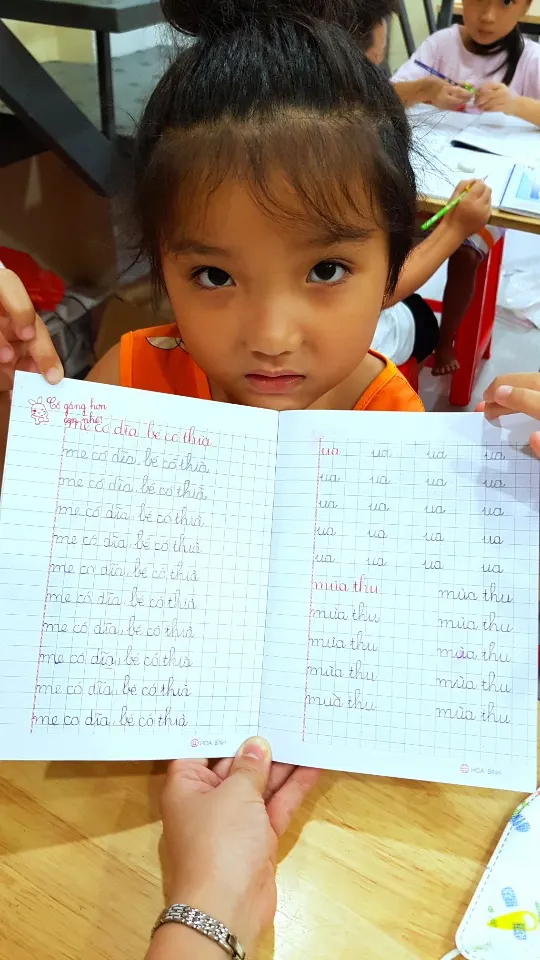 Cố gắng hơn
con nhé!
mẹ có dĩa, bé có thìa
mẹ có dĩa, bé có thìa
mẹ có dĩa, bé có thìa
mẹ có dĩa, bé có thìa
mẹ có dĩa, bé có thìa
mẹ có dĩa, bé có thìa
mẹ có dĩa, bé có thìa
mẹ có dĩa, bé có thìa
mẹ có dĩa, bé có thìa
mẹ có dĩa, bé có thìa
mẹ có dĩa, bé có thìa
HOA BÌNH
ua ua ua ua
ua ua ua ua
ua ua ua ua
ua ua ua ua
ua ua ua ua
mùa thu mùa thu
mùa thu mùa thu
mùa thu mùa thu
mùa thu mùa thu
mùa thu mùa thu
HOA BÌNH